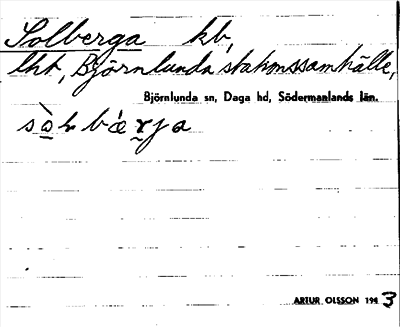 Solberga kb,
lht, Björnlunda stationssamhälle,
Björnlunda sn, Daga hd, Södermanlands län.
ARTUR OLSSON 194 3